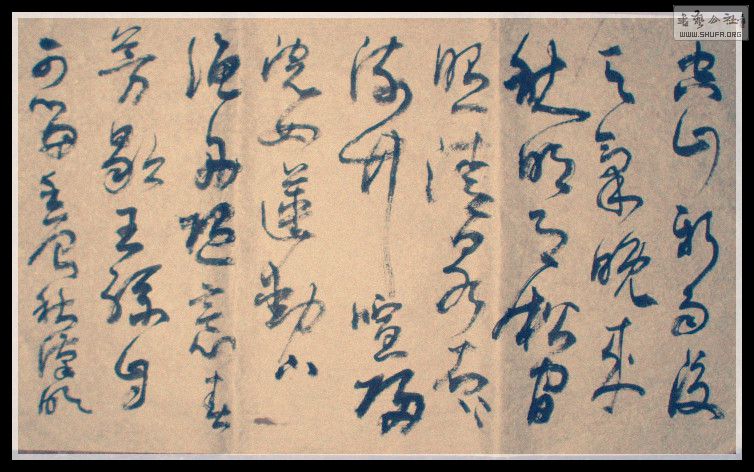 空山新雨後
天氣晚來
秋明月松間
照清泉石上
流竹喧歸
浣女蓮動下
漁舟隨意春
芳歇王孫自
可留秋漢明
书艺公社
WWW.SHUFA.ORG